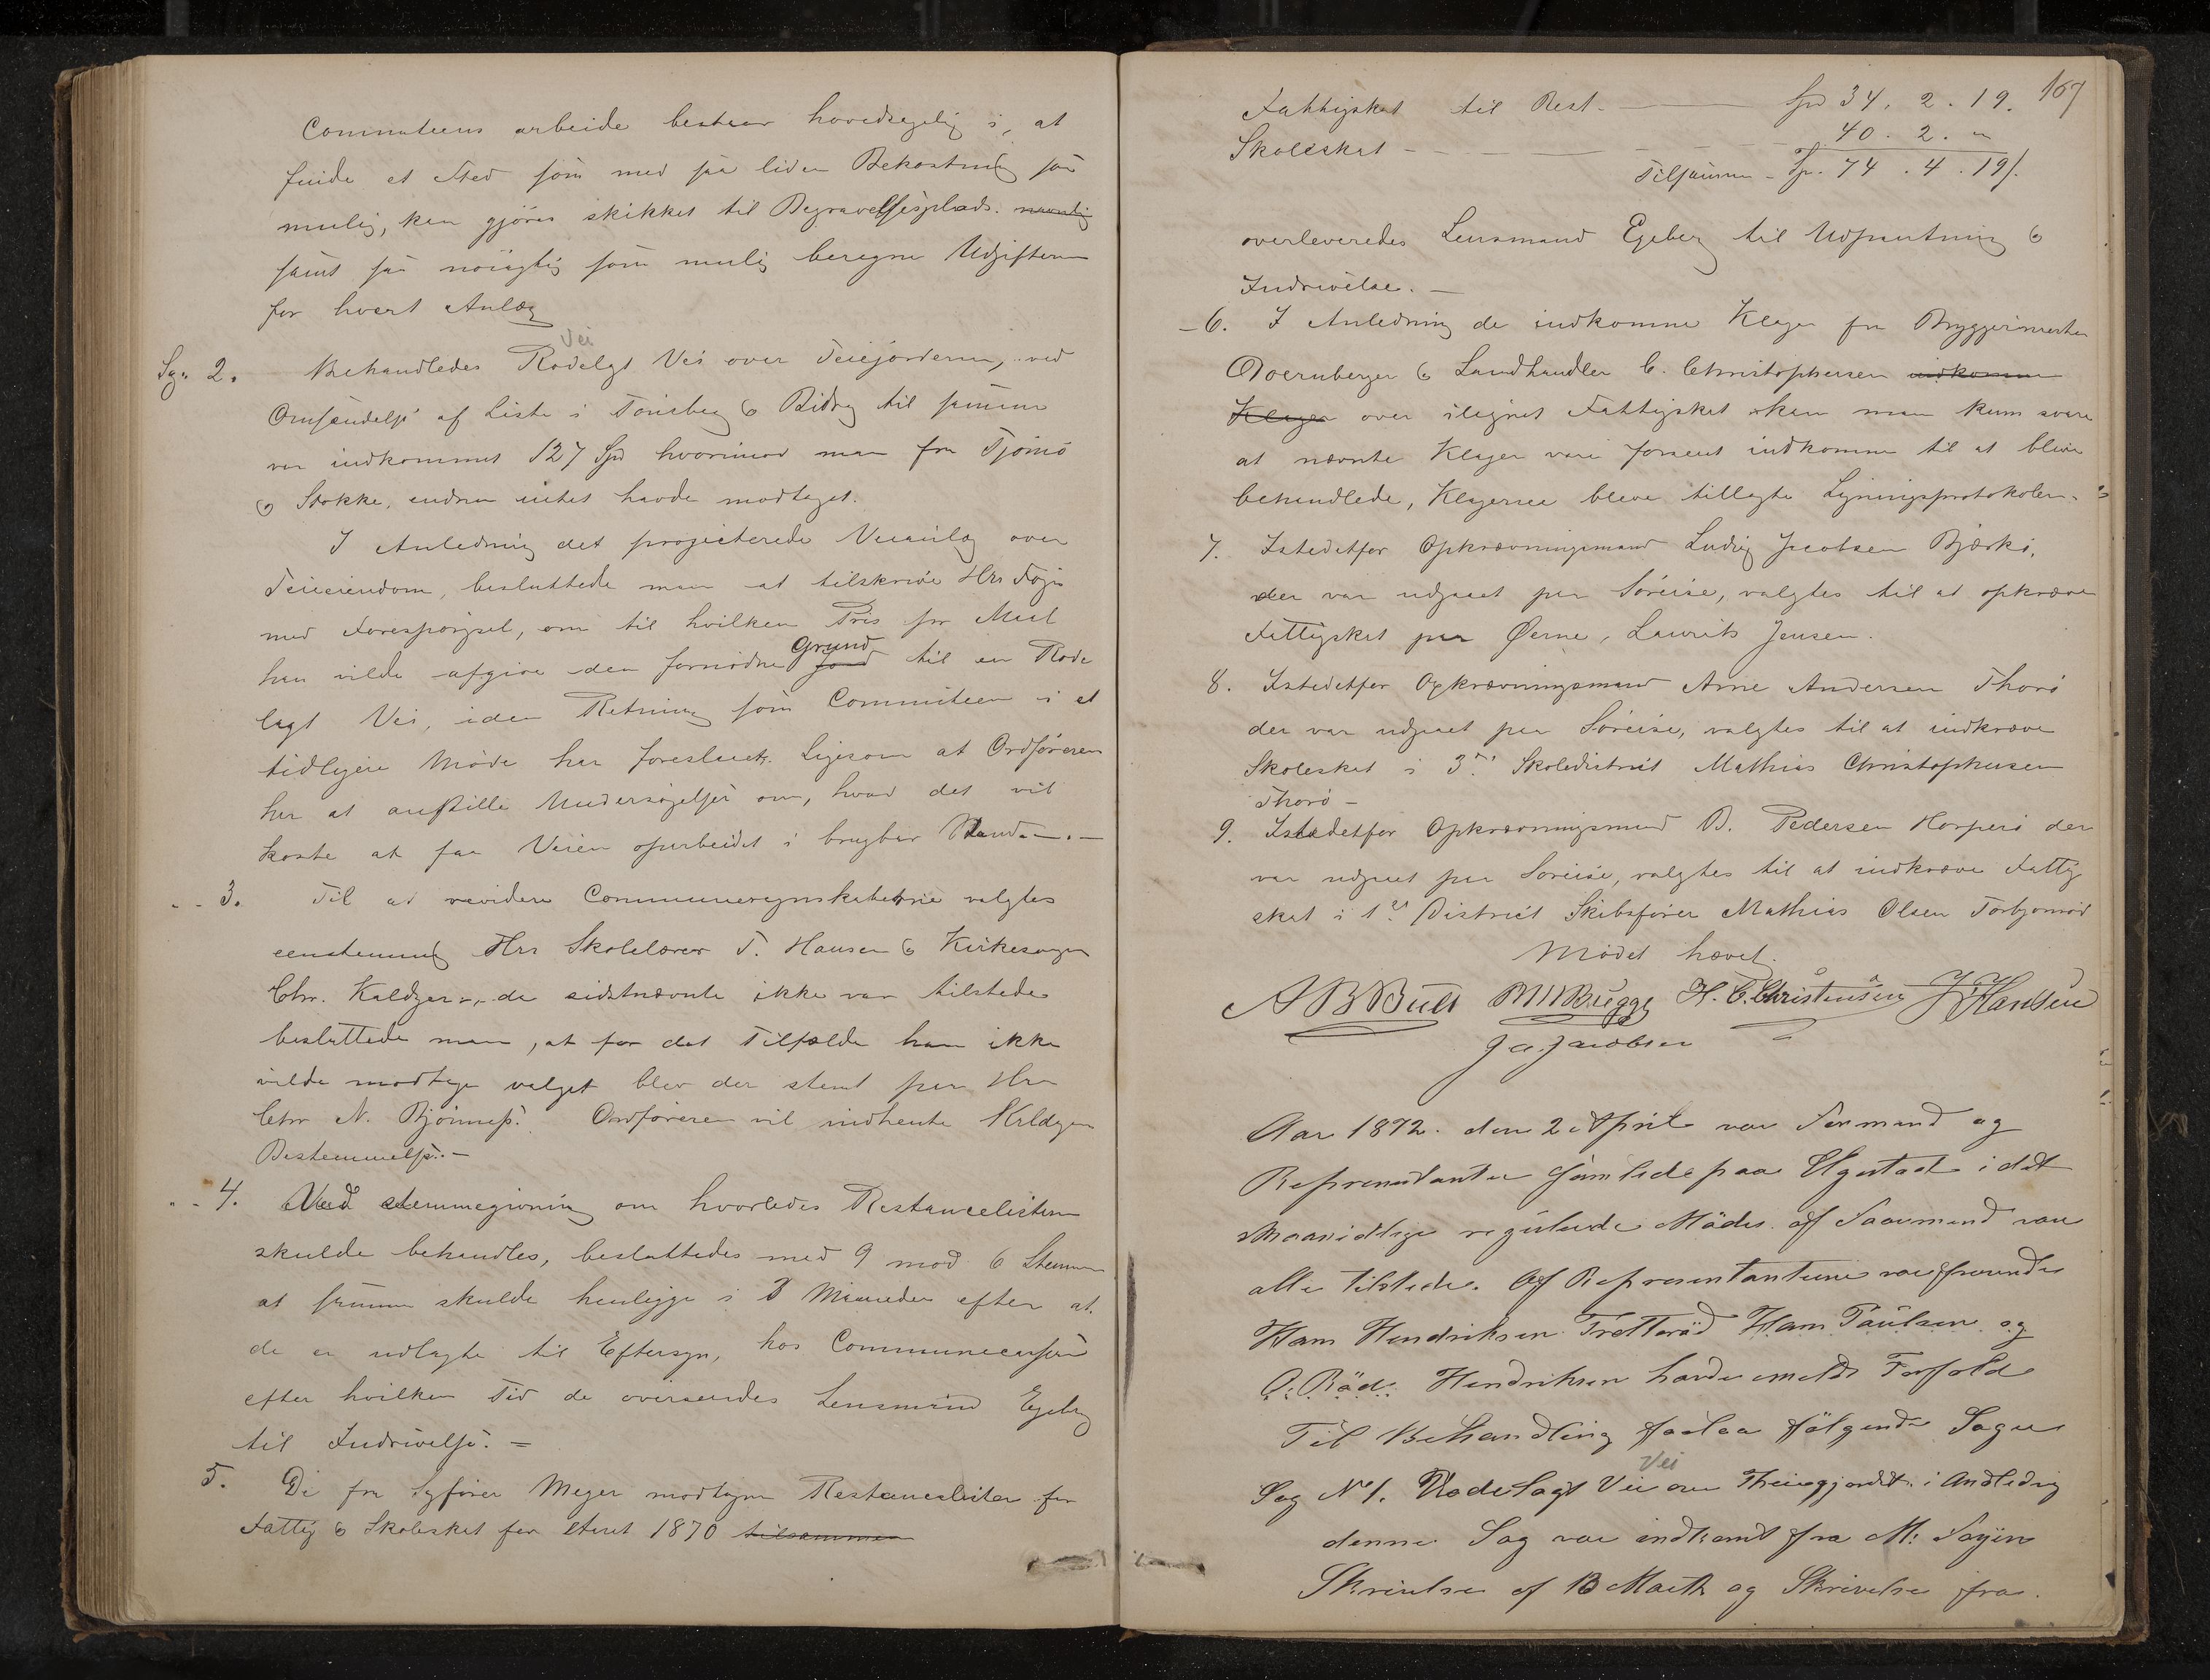 Committeens arbeide bestaar hovedsagelig i, at
finde et Sted som med saa liden Bekostning som
mulig, kan gjöres skikket til Begravelsesplads. navnlig
samt saa nöiagtig som mulig beregne Udgifterne
for hvert Anlæg
Vei
Sag 2. Behandledes Rodelagt Vei over Teiejorderne, ved
Omsendelse af Liste i Tönsberg & Bidrag til samme
var indkommet 127 Spd hvorimod man fra Tjömö
& Stokke, endnu intet havde modtaget.
I Anledning det projecterede Veianlæg over
Teieeiendom, besluttede man at tilskrive Hrr Foyn
med Forespörgsel, om til hvilken Pris pr Maal
Grund
han vilde afgive den fornödne Jord til en Rode
lagt Vei, i den Retning som Committeen i et
tidligere Möde har foreslaaet. Ligesom at Ordföreren
har at anstille Undersögelse om, hvad det vil
koste at faa Veien oparbeidet i brugbar Stand. —
" - 3. Til at revidere Communeregnskaberne valgtes
eenstemmig Hrr Skolelærer T. Hansen & Kirkesanger
Chr. Kaldager, da sidstnævnte ikke var tilstede
besluttede man, at for det Tilfælde han ikke
vilde modtage valget blev der stemt paa Hrr
Chr N. Björness. Ordföreren vil indhente Kaldagers
Bestemmelse. —
" - 4. Ved Stemmegivning om hvorledes Restancelisterne
skulde behandles, besluttedes med 9 mod 6 Stemmer
at samme skulde henligge i 3 Maaneder efter at
de er udlagte til Eftersyn, hos Communecasserer
efter hvilken Tid de oversendes Lensmand Egeberg
til Inddrivelse. =
5. De fra Meyer modtagne Restancelister for
Fattig & Skoleskat for Aaret 1870 tilsammen
167
Fattigskat til Rest. — Spd 34. 2. 19.
Skoleskat - — 40. 2. "
Tilsammen - Sp. 74. 4. 19/.
overleveredes Lensmand Egeberg til Udpantning &
Inddrivelse. —
- 6. I Anledning de indkomne Klager fra Bryggerimester
Doernberger & Landhandler C. Christophersen indkomne
Klager over ilignet Fattigskat skan man kun svare
at nævnte Klager vare forsent indkomne til at blive
behandlede, Klagerne bleve tillagte Ligningsprotokolen.
7. Istedetfor Opkrævningsmand Ludvig Jacobsen Bjærkö,
der var udgaaet paa Söreise, valgtes til at opkræve
Fattigskat paa Øerne, Laurits Jensen.
8. Istedetfor Opkrævningsmand Arne Andersen Thorö
der var udgaaet paa Söreise, valgtes til at indkræve
Skoleskat i 3die Skoledistrict Mathias Christophersen
Thorö -
9. Istedetfor Opkrævningsmand B. Pedersen der
var udgaaet paa Söreise, valgtes til at indkræve Fattig
skat i 1ste District Skibsfører Mathias Olsen Torbjørnrød
Mödet hævet.
A B Bull M Brugge H. C. Christensen J Hansen
J A Jacobsen
Aar 1872. den 2 April var Formænd og
Repræsentanter samlede paa Elgestad i det
Maanidlige regulerede Mödes. af Formænd var
alle tilstede. Af Repræsentanterne var fraværende
Hans Hendriksen Tretteröd Hans Paulsen og
O: Röd. Hendriksen havde anmeldt Forfald
Til Behandling forelaa fölgende Sager
Vei
Sag No 1. Rodelagt Vei over Theiegjordet. i Andledning
denne Sag var indkomt fra M: Foyen
Skrivelse af 13 Marts og Skrivelse fra.